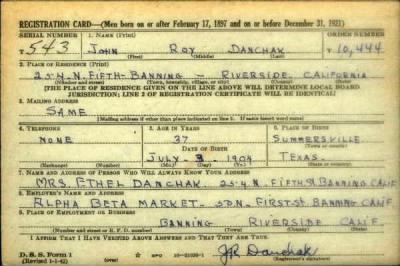 REGISTRATION CARD—(Men born on or after February 17, 1897 and on or before December 31, 1921)
SERIAL NUMBER 1. NAME (Print) ORDER NUMBER
T 543 JOHN ROY DANCHAK T 10,444
(First) (Middle) (Last)
2. PLACE OF RESIDENCE (Print)
254 N. FIFTH - BANNING — RIVERSIDE, CALIFORNIA
(Number and street) (Town, township, village, or city) (County) (State)
[THE PLACE OF RESIDENCE GIVEN ON THE LINE ABOVE WILL DETERMINE LOCAL BOARD
JURISDICTION; LINE 2 OF REGISTRATION CERTIFICATE WILL BE IDENTICAL]
3. MAILING ADDRESS
SAME
[Mailing address if other than place indicated on line 2. If same insert word same]
4. TELEPHONE 5. AGE IN YEARS 6. PLACE OF BIRTH
NONE 37 SUMMERSVILLE
DATE OF BIRTH (Town or county)
JULY 3 1904 TEXAS
(Exchange) (Number) (Mo.) (Day) (Yr.) (State or country)
7. NAME AND ADDRESS OF PERSON WHO WILL ALWAYS KNOW YOUR ADDRESS
MRS. ETHEL DANCHAK 254 N. FIFTH ST BANNING CALIF
8. EMPLOYER'S NAME AND ADDRESS
ALPHA BETA MARKET - N. FIRST ST. BANNING CALIF
9. PLACE OF EMPLOYMENT OR BUSINESS
BANNING RIVERSIDE CALIF
(Number and street or R. F. D. number) (Town) (County) (State)
I AFFIRM THAT I HAVE VERIFIED ABOVE ANSWERS AND THAT THEY ARE TRUE.
D. S. S. Form 1
(Revised 1-1-42) GPO JR Danchak
(Registrant's signature)